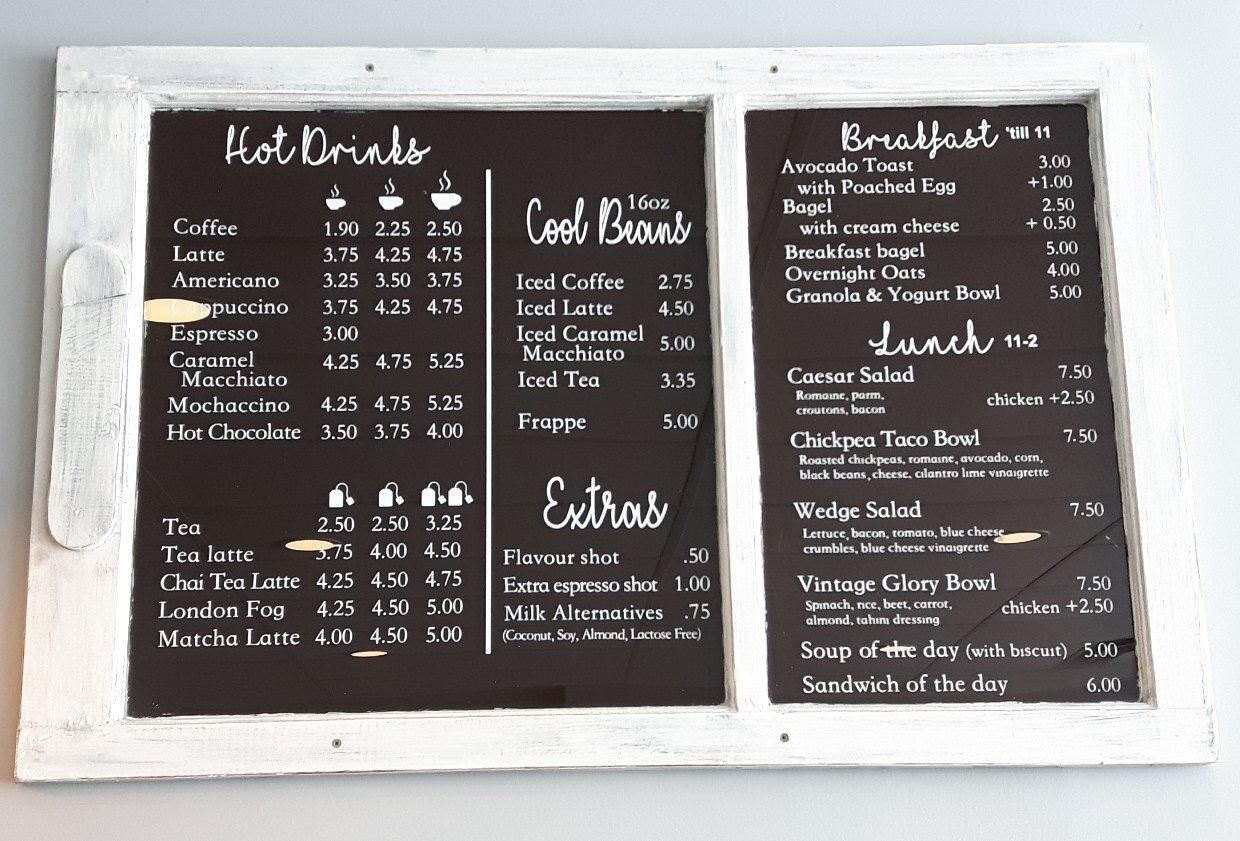 Hot Drinks
Coffee 1.90 2.25 2.50
Latte 3.75 4.25 4.75
Americano 3.25 3.50 3.75
Cappuccino 3.75 4.25 4.75
Espresso 3.00
Caramel
Macchiato 4.25 4.75 5.25
Mochaccino 4.25 4.75 5.25
Hot Chocolate 3.50 3.75 4.00
Tea 2.50 2.50 3.25
Tea latte 3.75 4.00 4.50
Chai Tea Latte 4.25 4.50 4.75
London Fog 4.25 4.50 5.00
Matcha Latte 4.00 4.50 5.00
16oz
Cool Beans
Iced Coffee 2.75
Iced Latte 4.50
Iced Caramel
Macchiato 5.00
Iced Tea 3.35
Frappe 5.00
Extras
Flavour shot .50
Extra espresso shot 1.00
Milk Alternatives .75
(Coconut, Soy, Almond, Lactose Free)
Breakfast 'till 11
Avocado Toast 3.00
with Poached Egg +1.00
Bagel 2.50
with cream cheese + 0.50
Breakfast bagel 5.00
Overnight Oats 4.00
Granola & Yogurt Bowl 5.00
Lunch 11-2
Caesar Salad 7.50
Romaine, parm,
croutons, bacon chicken +2.50
Chickpea Taco Bowl 7.50
Roasted chickpeas, romaine, avocado, corn,
black beans, cheese, cilantro lime vinaigrette
Wedge Salad 7.50
Lettuce, bacon, tomato, blue cheese
crumbles, blue cheese vinaigrette
Vintage Glory Bowl 7.50
Spinach, rice, beet, carrot,
almond, tahini dressing chicken +2.50
Soup of the day (with biscuit) 5.00
Sandwich of the day 6.00